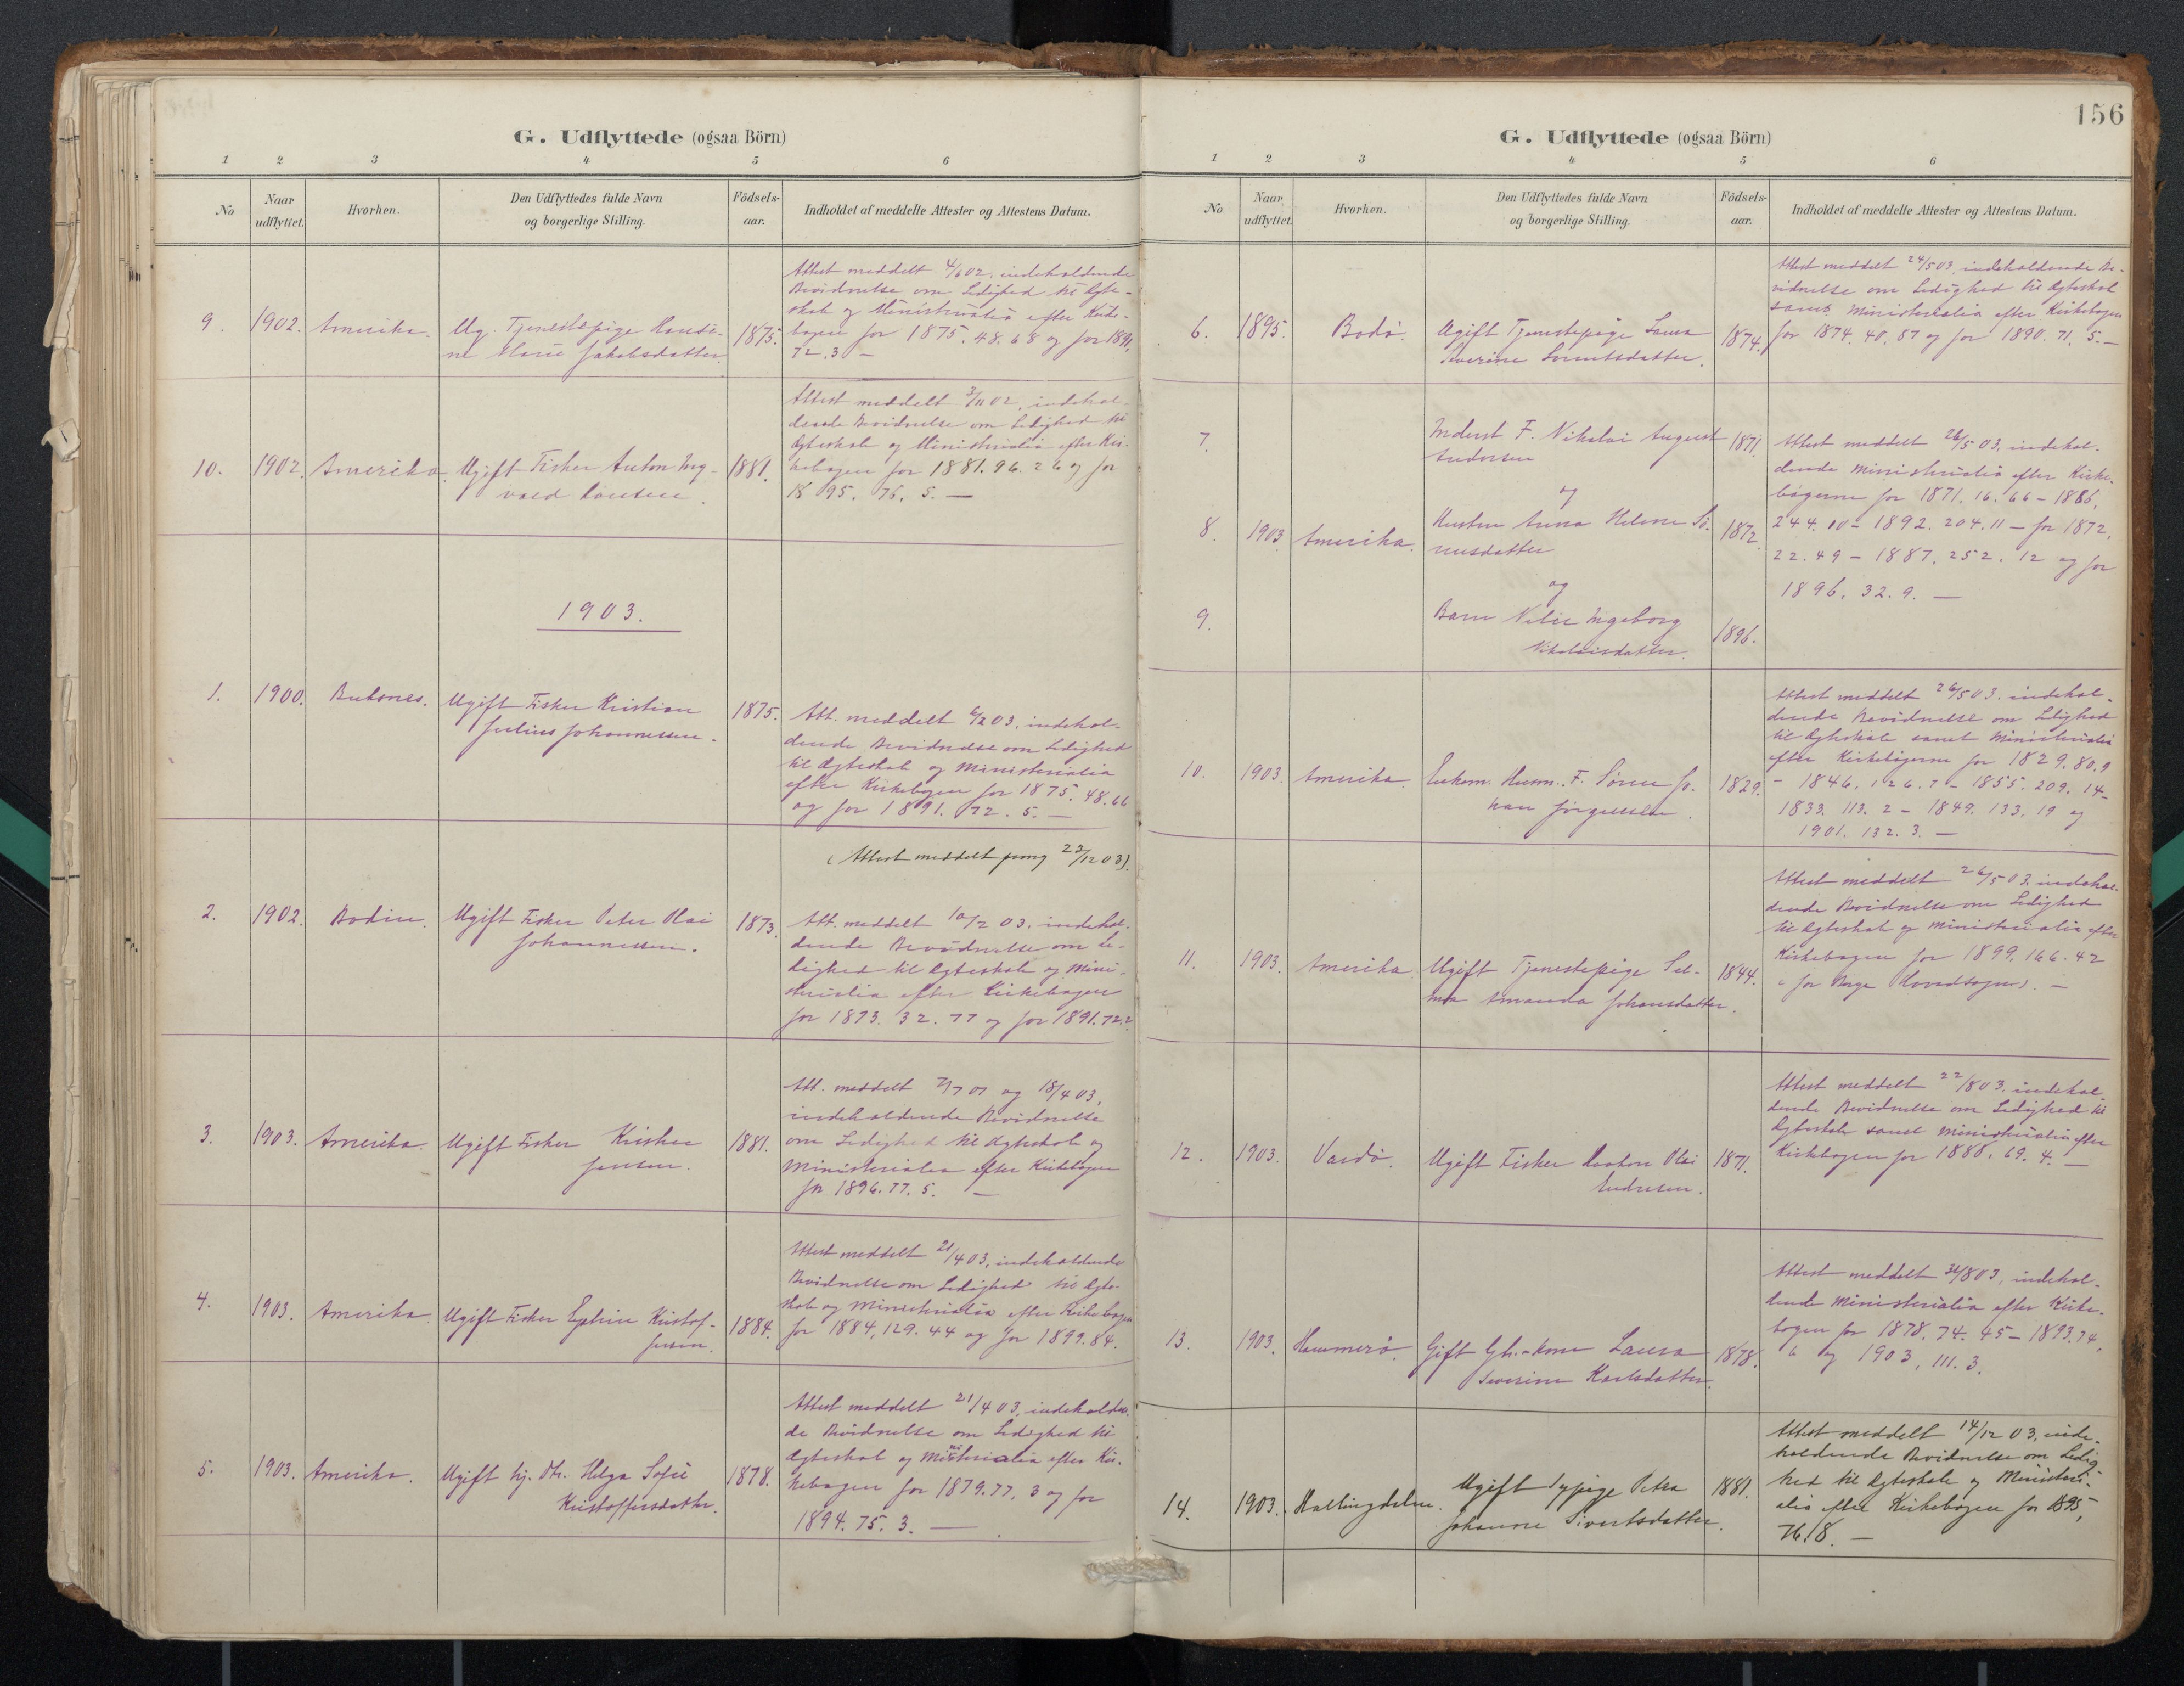 G. Udflyttede (ogsaa Börn)
1 2 3 4 5 6
No Naar udflyttet. Hvorhen. Den Udflyttedes fulde Navn og borgerlige Stilling. Födsels-aar. Indholdet af meddelte Attester og Attestens Datum.
9. 1902. Amerika. Ug. Tjenestepige
ne Marie Jakobsdatter. 1875.
Attest meddelt 4/6 02, indeholdende
Bevidnelse om Ledighed til Ægte-
skab og Ministerialia efter Kirke-
bogen for 1875. 48. 68 og for 1891.
72. 3 —
10. 1902. Amerika. Ugift Fisker Anton Ing-
vald 1881.
Attest meddelt 3/11 02, indehol-
dende Bevidnelse om Ledighed til
Ægteskab og Ministerialia efter Kir-
kebogen for 1881. 96. 26 og for
1895. 76. 5. —
1903.
1. 1900. Buksnes. Ugift Fisker Kristian
Julius Johannessen. 1875.
Att. meddelt 6/2 03, indehol-
dende Bevidnelse om Ledighed
til Ægteskab og Ministerialia
efter Kirkebogen for 1875. 48. 66
og for 1891. 72. 5. —
(Attest meddelt paany 22/12 03).
2. 1902. Bodin. Ugift Fisker Peter Olai
Johannessen. 1873.
Att. meddelt 10/2 03, indehol-
dende Bevidnelse om Le-
dighed til Ægteskab og Mini-
sterialia efter Kirkebogen
for 1873. 32. 77 og for 1891. 72. 2
3. 1903. Amerika. Ugift Fisker
Jensen. 1881.
Att. meddelt 7/7 01 og 18/4 03,
indeholdende Bevidnelse
om Ledighed til Ægteskab og
Ministerialia efter Kirkebogen
for 1896. 77. 5. —
4. 1903. Amerika. Ugift Fisker Kristof-
fersen. 1884.
Attest meddelt 21/4 03, indeholdende
Bevidnelse om Ledighed til Ægte-
skab og Ministerialia efter Kirkebogen
for 1884, 129. 44 og for 1899. 84.
5. 1903. Amerika. Ugift hj. Dtr. Helga Sofie
Kristoffersdatter. 1878.
Attest meddelt 21/4 03, indeholden-
de Bevidnelse om Ledighed til
Ægteskab og Ministerialia efter Kir-
kebogen for 1879. 77. 3 og for
1894. 75. 3. —
156
G. Udflyttede (ogsaa Börn)
1 2 3 4 5 6
No Naar udflyttet. Hvorhen. Den Udflyttedes fulde Navn og borgerlige Stilling. Födsels-aar. Indholdet af meddelte Attester og Attestens Datum.
6. 1895. Bodø. Ugift Tjenestepige Laura
Severine Lorentsdatter. 1874.
Attest meddelt 24/5 03, indeholdende Be-
vidnelse om Ledighed til Ægteskab
samt Ministerialia efter Kirkebogen
for 1874. 40. 87 og for 1890. 71. 5. —
7. Inderst F. Nikolai August
Andersen 1871.
og
8. 1903. Amerika. Hustru Anna Helene Sø-
rensdatter 1872.
og
9. Barn Ingeborg
Nikolaisdatter. 1896.
Attest meddelt 26/5 03, indehol-
dende Ministerialia efter Kirke-
bøgerne for 1871. 16. 66 – 1886,
244. 10 – 1892. 204. 11 – for 1872,
22. 49 – 1887. 252. 12 og for
1896. 32. 9. —
10. 1903. Amerika. Enkem. Husm. F. Søren Jo-
han Jørgensen. 1829.
Attest meddelt 26/5 03, indehol-
dende Bevidnelse om Ledighed
til Ægteskab samt Ministerialia
efter Kirkebøgerne for 1829. 80. 9
– 1846. 126. 7 – 1855. 209. 14 –
1833. 113. 2 – 1849. 133. 19 og
1901. 132. 3. —
11. 1903. Amerika. Ugift Tjenestepige Sel-
ma Amanda Johansdatter. 1844.
Attest meddelt 26/5 03, indehol-
dende Bevidnelse om Ledighed
til Ægteskab og Ministerialia efter
Kirkebogen for 1899. 166. 42
(for Borge Hovedsogn). —
12. 1903. Vardø. Ugift Fisker Haakon Olai
Endresen. 1871.
Attest meddelt 22/8 03, indehol-
dende Bevidnelse om Ledighed til
Ægteskab samt Ministerialia efter
Kirkebogen for 1888. 69. 4. —
13. 1903. Hammerø. Gift Gb.-kone Laura
Severine Karlsdatter. 1878.
Attest meddelt 31/8 03, indehol-
dende Ministerialia efter Kirke-
bogen for 1878. 74. 45 – 1893. 74.
6 og 1903, 111. 3.
14. 1903. Hallingdalen. Ugift Sypige Petra
Johanne Sivertsdatter. 1881.
Attest meddelt 14/12 03, inde-
holdende Bevidnelse om Ledig-
hed til Ægteskab og Ministeri-
alia efter Kirkebogen for 1895,
76. 8. —